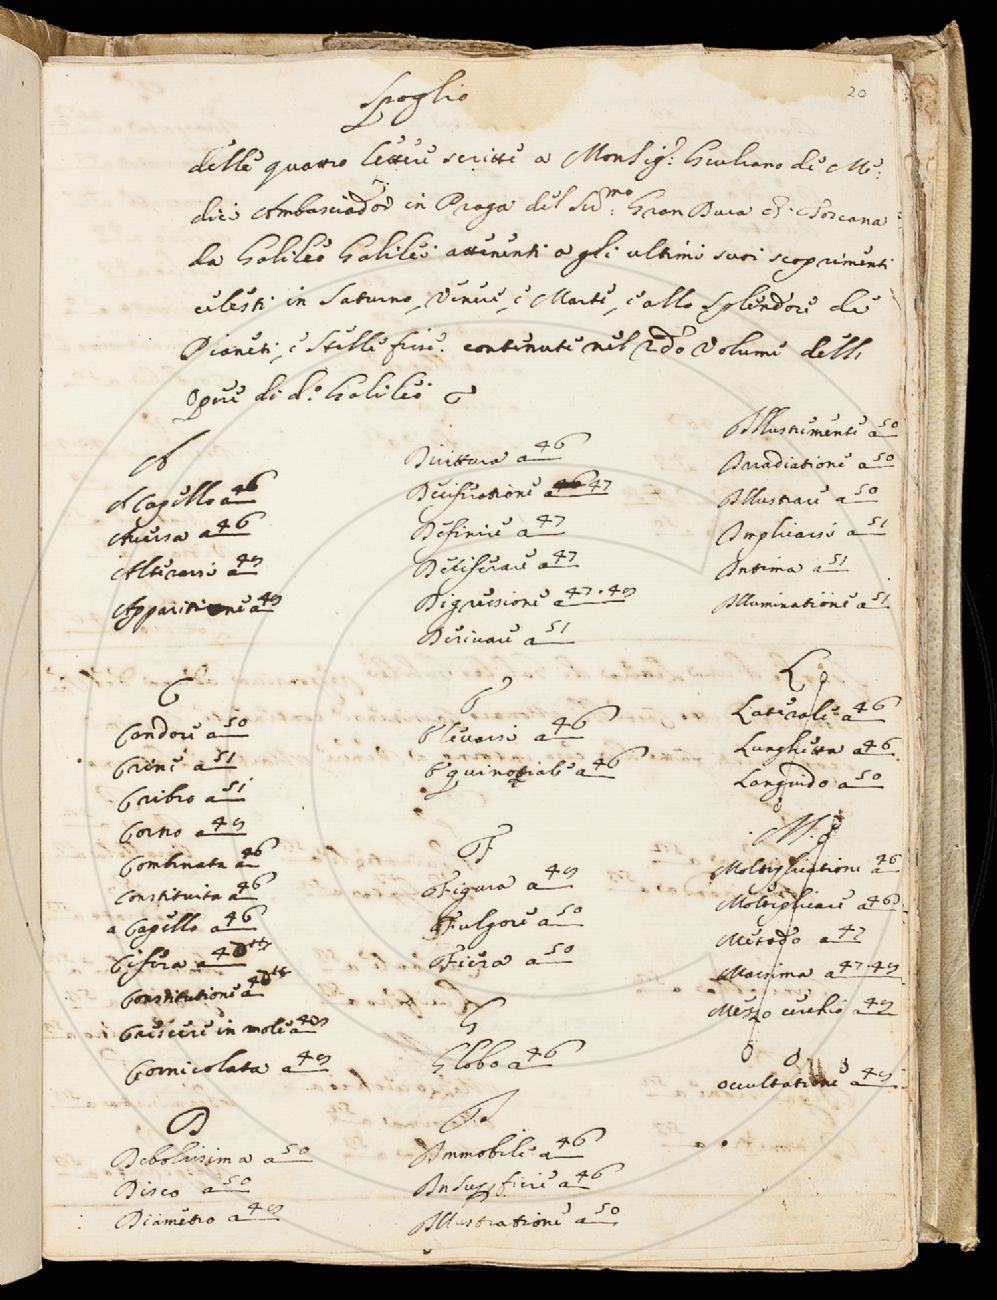 20
Spoglio
delle quattro lettere scritte a Monsig.r Giuliano de Me:
dici Ambasciador in Praga del Ser.mo Gran Duca di Toscana
da Galileo Galilei attenenti a gli ultimi suoi scoprimenti
celesti in Saturno, Venere, e Marte, e allo splendore de
Pianeti, e Stelle fisse. contenute nel 2do Volume dell'
Opere di d.o Galileo
A
A Capello a 46
Aversa a 46
Altirarsi a 49
Apparitione a 49
C
Candore a 50
Crine a 51
Cribro a 51
Corno a 49
Combinata a 46
Constituita a 46
a Capello a 46
Cifera a 47
Constitutione a 48
Crescere in mole a 49
Cornicolata a 49
D
Debolissima a 50
Disco a 50
Diametro a 49
Dirittura a 46
Deciferatione a 47
Definire a 47
Deciferare a 47
Digressione a 47. 49
Derivare a 51
E
Elevarsi a 46
Equinotiale a 46
F
Figura a 49
Fulgore a 50
Fiera a 50
G
Globo a 46
I
Immobile a 46
Insuperfiere a 46
Illustratione a 50
Illustrimente a 50
Irradiatione a 50
Illustrare a 50
Implicarsi a 51
Intima a 51
Illuminatione a 51
L
Laterale a 46
Lunghetta a 46
Languido a 50
M
Moltiplicatione a 46
Moltiplicare a 46
Metodo a 47
Massima a 47. 49
Mezzo cerchio a 49
O
occultatione a 49